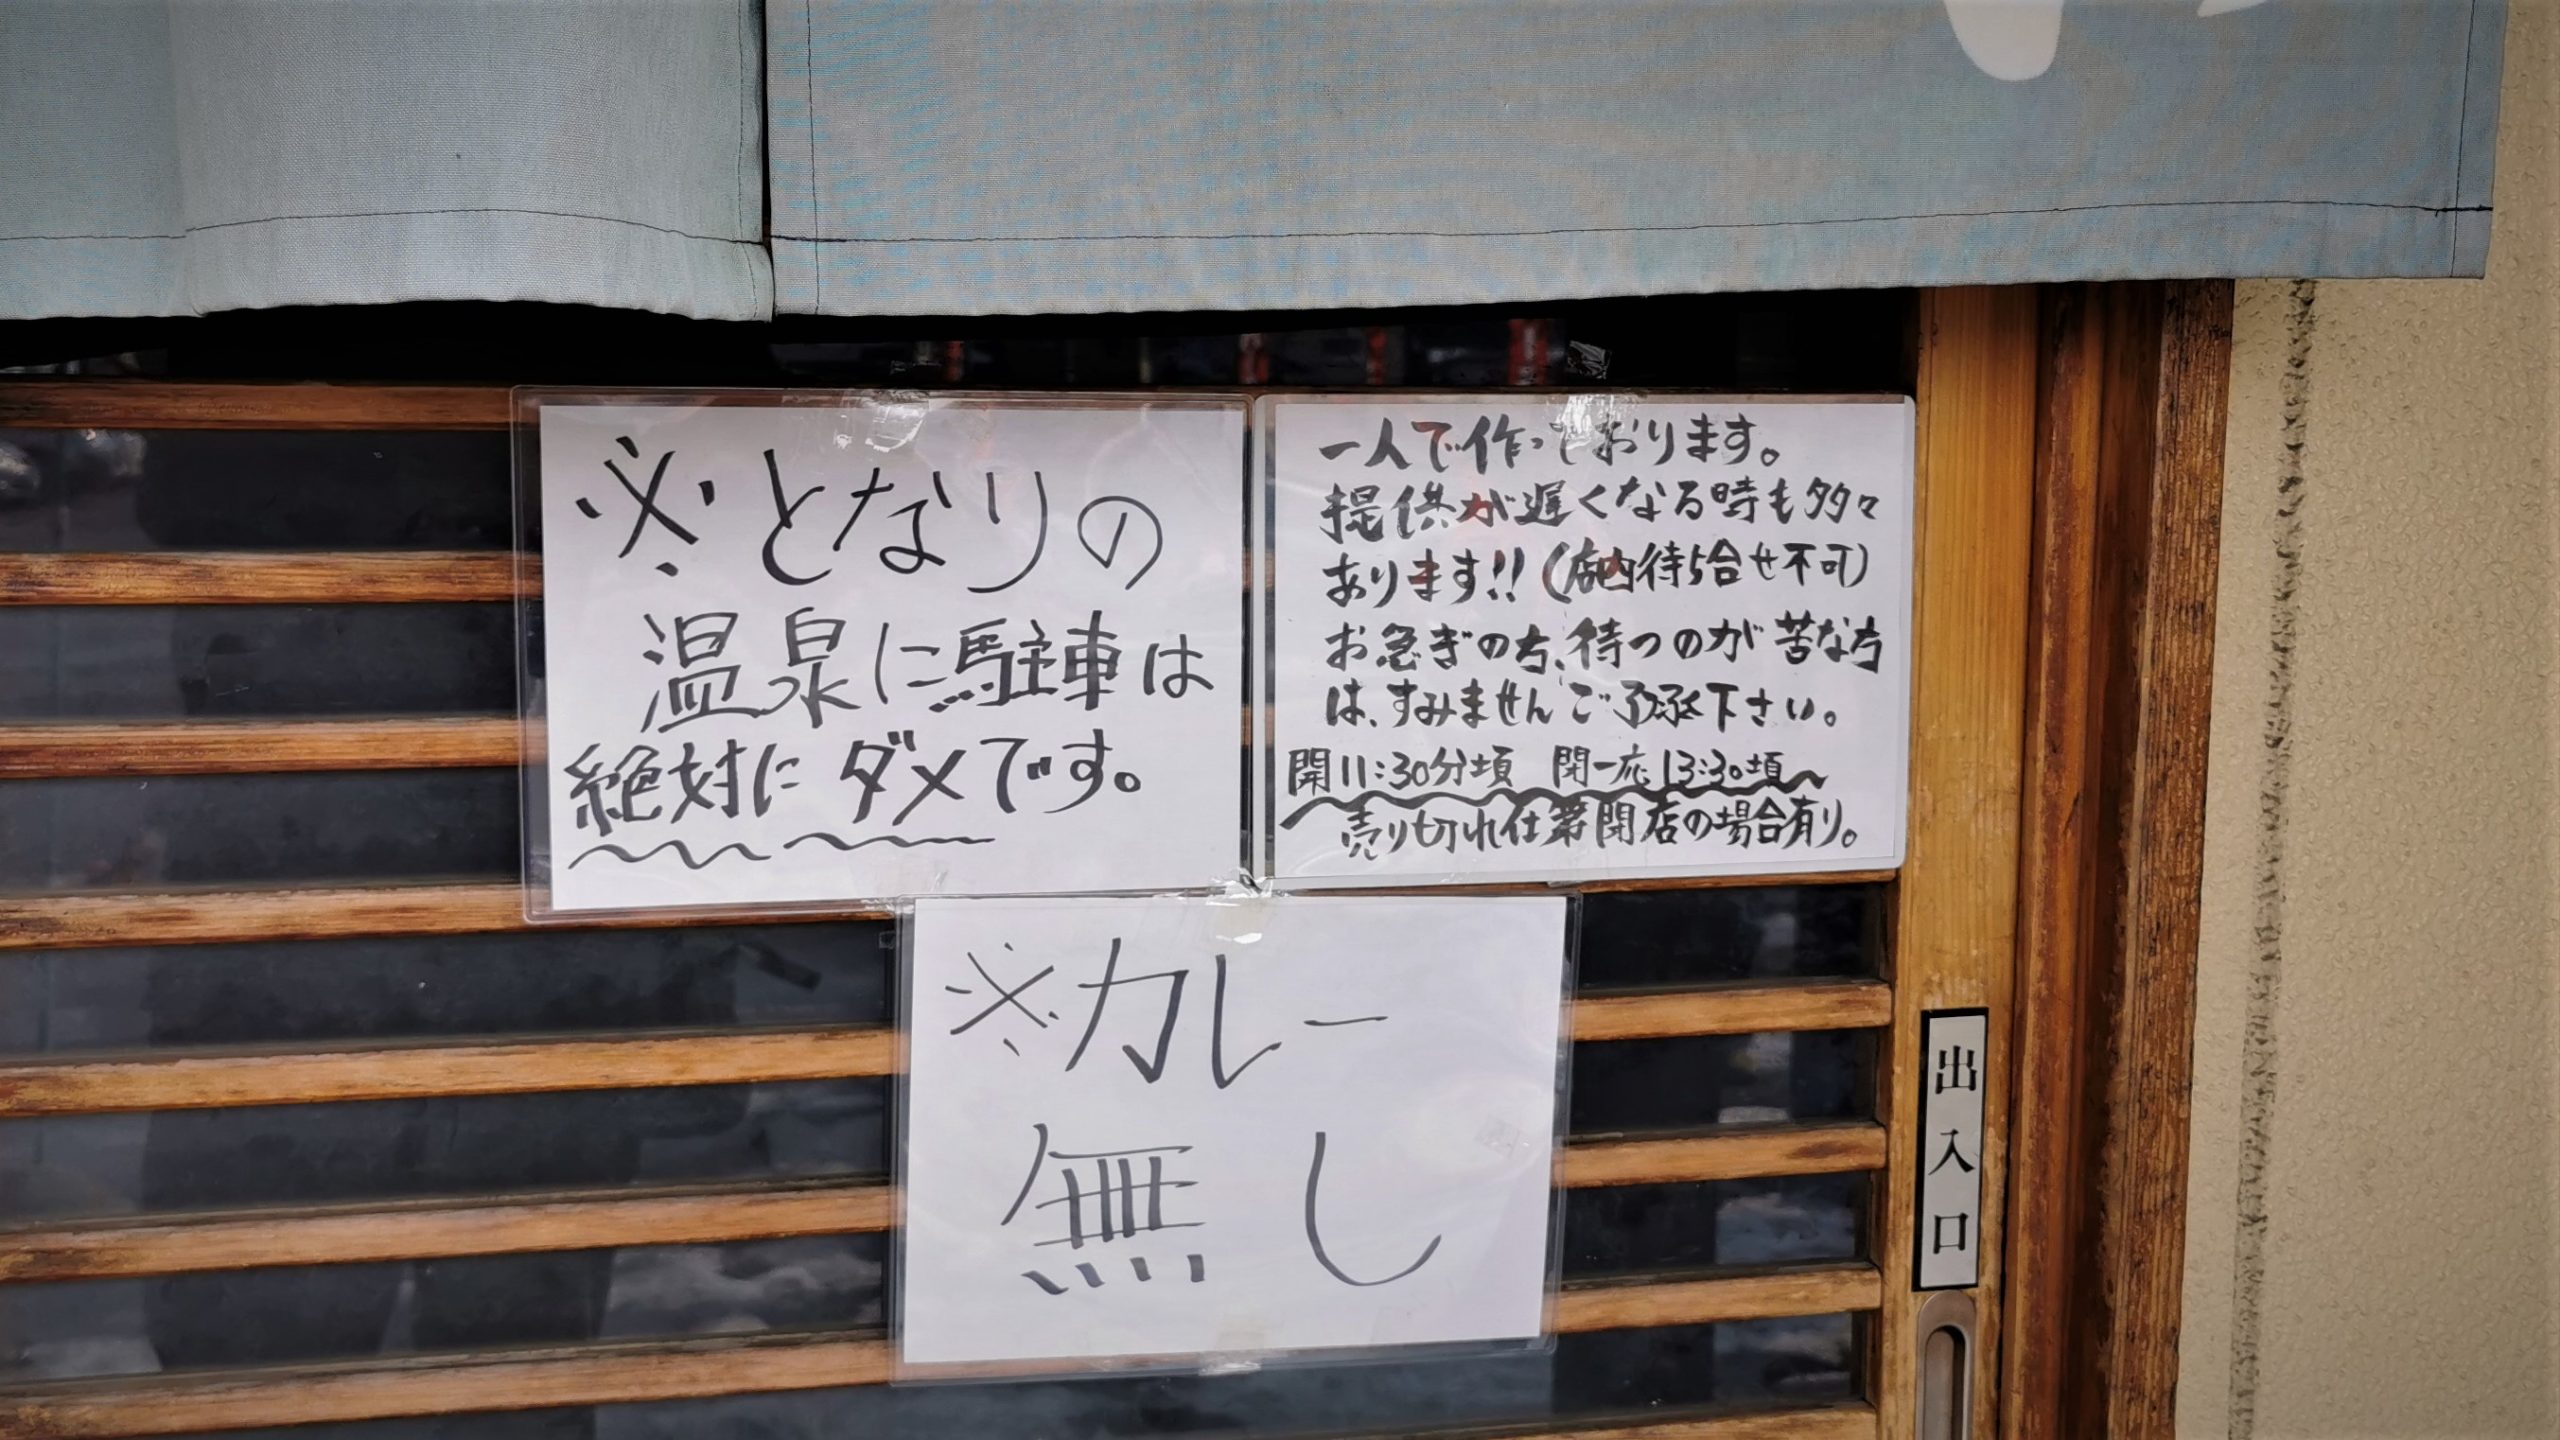 ※となりの
温泉に駐車は
絶対にダメです。
一人で作っております。
提供が遅くなる時も多々
あります!!(店内待ち合せ不可)
お急ぎの方、待つのが苦な方
は、すみませんご了承下さい。
開11:30分頃 閉一応13:30頃〜
売り切れ仕第閉店の場合有り。
※カレー
無し
出入口